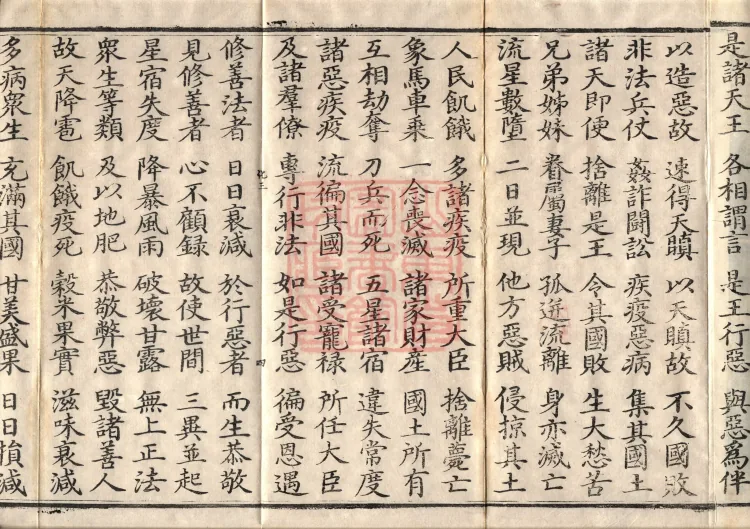 是諸天王 各相謂言 是王行惡 與惡為伴
以造惡故 速得天瞋 以天瞋故 不久國敗
非法兵仗 姦詐鬪訟 疾疫惡病 集其國土
諸天即便 捨離是王 令其國敗 生大愁苦
兄弟姊妹 眷屬妻子 孤迸流離 身亦滅亡
流星數墮 二日並現 他方惡賊 侵掠其土
人民飢餓 多諸疾疫 所重大臣 捨離薨亡
象馬車乗 一念喪滅 諸家財産 國土所有
互相劫奪 刀兵而死 五星諸宿 違失常度
諸惡疾疫 流徧其國 諸受寵禄 所任大臣
及諸羣僚 專行非法 如是行惡 徧受恩遇
修善法者 日日衰減 於行惡者 而生恭敬
見修善者 心不顧録 故使世間 三異並起
星宿失度 降暴風雨 破壞甘露 無上正法
衆生等類 及以地肥 恭敬弊惡 毀諸善人
故天降雹 飢餓疫死 穀米果實 滋味衰減
多病衆生 充滿其國 甘美盛果 日日損減